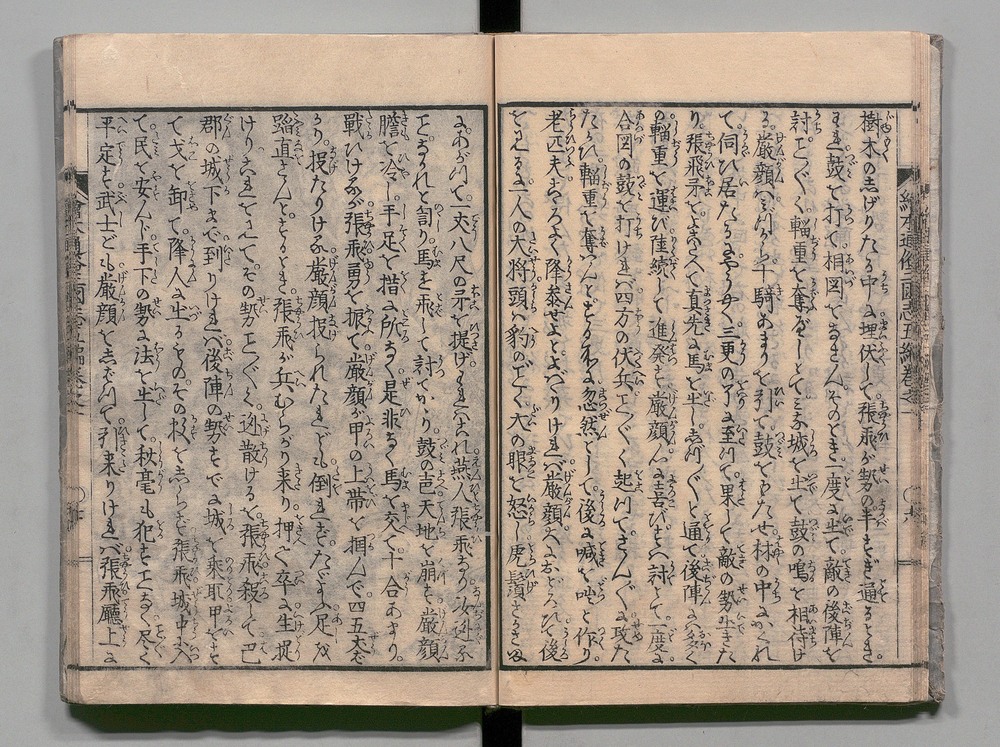 繪本通俗三國志五編巻之一
樹木のしげりたる中に埋伏して張飛が勢の半すぎ通るとき。
われ鼓を打て相図をなさん。そのとき一度に出て敵の後陣を
討ことごとく輜重を奪ふべしとてミな城を出て鼓の鳴を相待け
る。厳顔ハみづから十騎あまりを引て鼓をもたせ林の中にかくれ
て伺ひ居たるにやうやく三更のころに至つて。果して敵の勢出きた
り張飛矛をよこたへて真先に馬を出ししづ〱と通て後陣に多く
の輜重を運び陸続して進発す厳顔大に喜びすハ討とて一度に
合図の鼓を打けれバ四方の伏兵ことごとく起つてさんざんに攻た
輜重を奪ハんとするに忽然として後に喊を咄と作り。
老匹夫はやく降参せよとよバりけれバ厳顔おどろひて後
を見るに一人の大将頭ハ豹のごとく大の眼を怒し虎鬚さかさま
にあがつて一丈八尺の矛を提げ。われハこれ燕人張飛なり汝逆ふ
ことなかれと罵り馬を飛して討てかゝり鼓の声天地を崩す厳顔
膽を冷し。手足を措に所なく是非なく馬を交て十合あまり。
戦ひけるが張飛勇を振て厳顔が甲の上帯を掴んで四五丈ば
かり投たりける厳顔投られたれども倒れずたゞよふ足を
踏直さんとするとき。張飛が兵むらがり来り。押へて卒に生捉
けり。これを見てその勢ことごとく迯散けるを。張飛殺して巴
郡の城下まで到りけれバ。後陣の勢すでに城を乗取甲をすて
て戈を卸て降人に出るものその数をしらず。張飛城中に入
て民を安んじ手下の勢に法を出して。秋毫も犯すことなく尽く
平定す武士ども厳顔をしばつて引来りけれバ。張飛廳上に